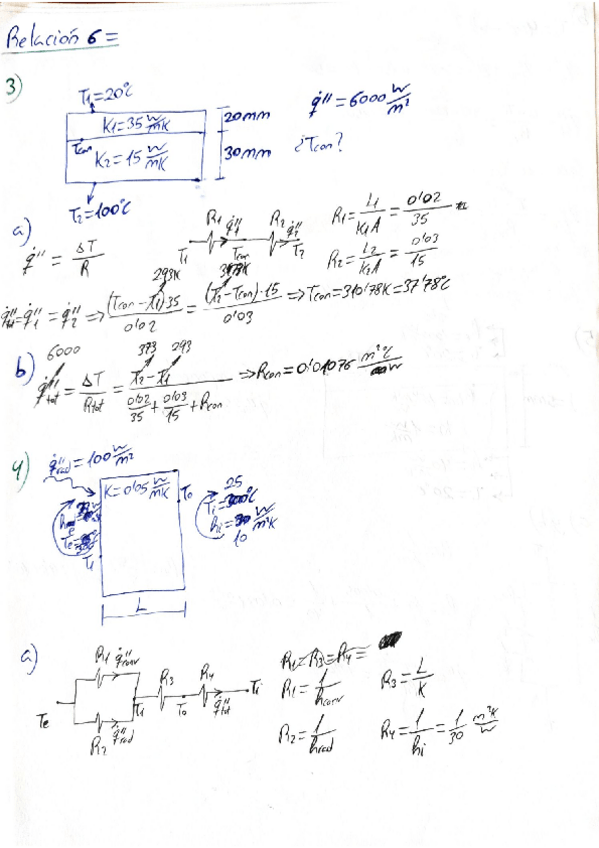 Relación 6=
3)
T1=20°C
q̇''=6000 W/m²
K1=35 W/mK
20mm
Tcon
¿Tcon?
K2=15 W/mK
30mm
T2=100°C
a)
q̇''=ΔT/R
T1 R1 q̇1'' Tcon R2 q̇2'' T2
R1=L1/K1A=0'02/35
R2=L2/K2A=0'03/15
293K
q̇''tot=q̇''1=q̇''2 ⇒ (Tcon-T1)·35/0'02=(T2-Tcon)·15/0'03 ⇒ Tcon=310'78K=37'78°C
b)
6000 373 293
q̇''tot=ΔT/Rtot=T2-T1/(0'02/35+0'03/15+Rcon) ⇒ Rcon=0'01076 m²°C/W
4)
q̇''rad=100 W/m²
K=0'05 W/mK
T0
25
Ti=°C
hi= W/m²K
10
Te=
T1
L
a)
R1 q̇''conv
Te T1 R3 T0 R4 q̇''tot Ti
R2 q̇''rad
R1=R3=R4=
R1=1/hconv
R3=L/K
R2=1/hrad
R4=1/hi=1/30 m²K/W